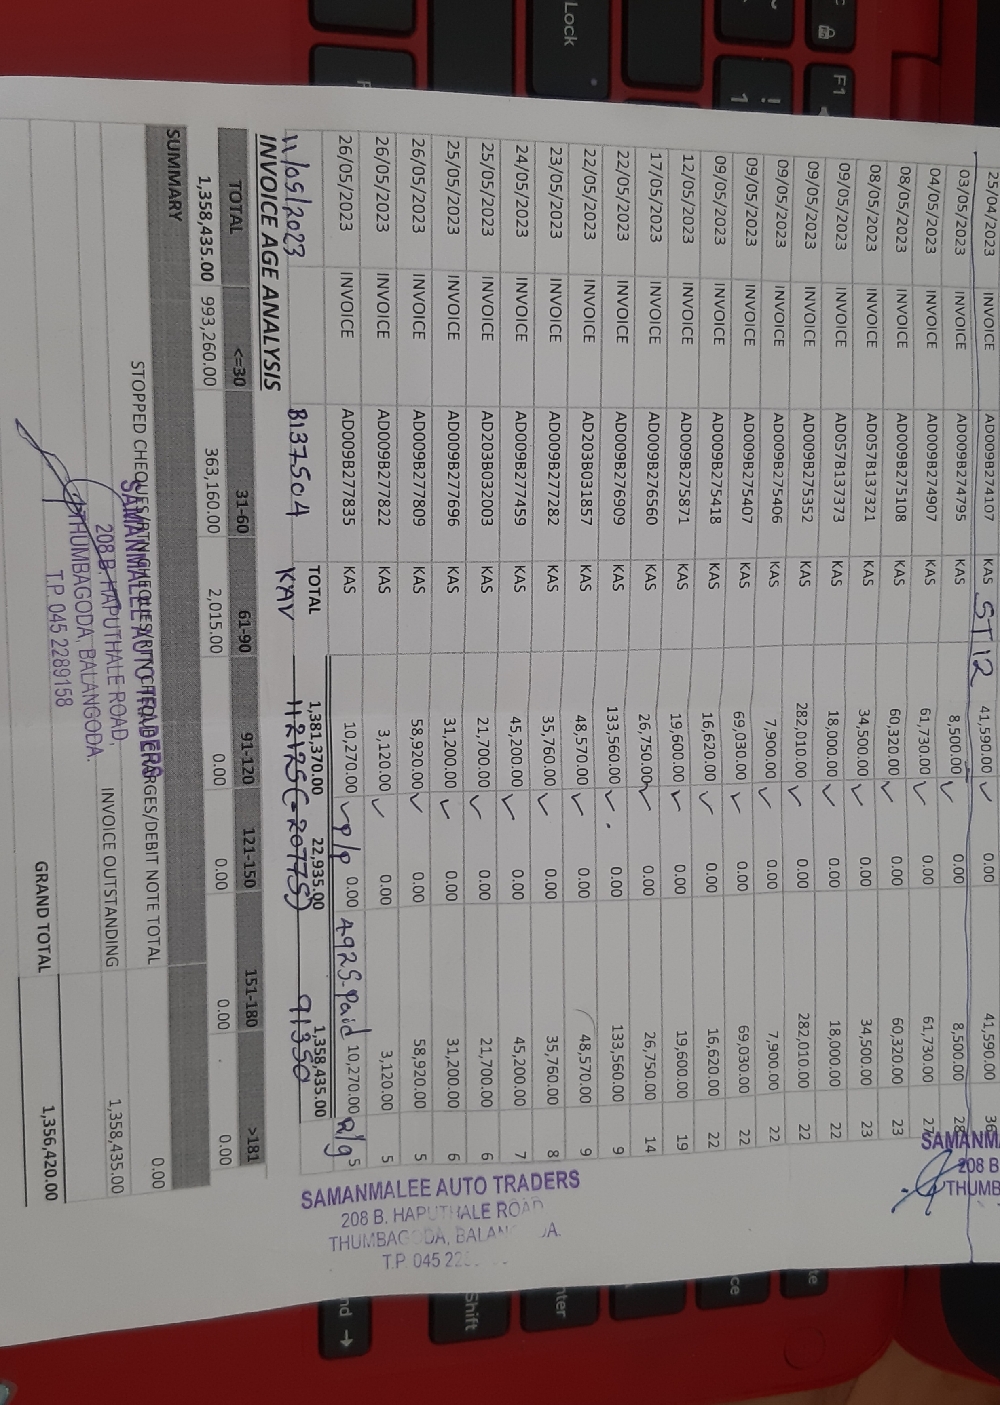 25/04/2023 INVOICE AD009B274107 KAS ST12 41,590.00 0.00 41,590.00 36
03/05/2023 INVOICE AD009B274795 KAS 8,500.00 0.00 8,500.00 28
04/05/2023 INVOICE AD009B274907 KAS 61,730.00 0.00 61,730.00 27
08/05/2023 INVOICE AD009B275108 KAS 60,320.00 0.00 60,320.00 23
08/05/2023 INVOICE AD057B137321 KAS 34,500.00 0.00 34,500.00 23
09/05/2023 INVOICE AD057B137373 KAS 18,000.00 0.00 18,000.00 22
09/05/2023 INVOICE AD009B275352 KAS 282,010.00 0.00 282,010.00 22
09/05/2023 INVOICE AD009B275406 KAS 7,900.00 0.00 7,900.00 22
09/05/2023 INVOICE AD009B275407 KAS 69,030.00 0.00 69,030.00 22
09/05/2023 INVOICE AD009B275418 KAS 16,620.00 0.00 16,620.00 22
12/05/2023 INVOICE AD009B275871 KAS 19,600.00 0.00 19,600.00 19
17/05/2023 INVOICE AD009B276560 KAS 26,750.00 0.00 26,750.00 14
22/05/2023 INVOICE AD009B276909 KAS 133,560.00 0.00 133,560.00 9
22/05/2023 INVOICE AD203B031857 KAS 48,570.00 0.00 48,570.00 9
23/05/2023 INVOICE AD009B277282 KAS 35,760.00 0.00 35,760.00 8
24/05/2023 INVOICE AD009B277459 KAS 45,200.00 0.00 45,200.00 7
25/05/2023 INVOICE AD203B032003 KAS 21,700.00 0.00 21,700.00 6
25/05/2023 INVOICE AD009B277696 KAS 31,200.00 0.00 31,200.00 6
26/05/2023 INVOICE AD009B277809 KAS 58,920.00 0.00 58,920.00 5
26/05/2023 INVOICE AD009B277822 KAS 3,120.00 0.00 3,120.00 5
26/05/2023 INVOICE AD009B277835 KAS 10,270.00 P/P 0.00 A925-Paid 10,270.00 5
TOTAL 1,381,370.00 22,935.00 1,358,435.00
11/05/2023 B137504 KAV 91350
INVOICE AGE ANALYSIS
TOTAL <=30 31-60 61-90 91-120 121-150 151-180 >181
1,358,435.00 993,260.00 363,160.00 2,015.00 0.00 0.00 0.00 0.00
SUMMARY
STOPPED CHEQUES/RTN CHEQUES/RTN CHEQ CHARGES/DEBIT NOTE TOTAL 0.00
INVOICE OUTSTANDING 1,358,435.00
GRAND TOTAL 1,356,420.00
SAMANMALEE AUTO TRADERS
208 B. HAPUTHALE ROAD,
THUMBAGODA, BALANGODA.
T.P. 045 2289158
SAMANMALEE AUTO TRADERS
208 B. HAPUTHALE ROAD
THUMBAGODA,
T.P. 045
SAMANM
208 B
THUMB
Lock
F1
!
1
Shift